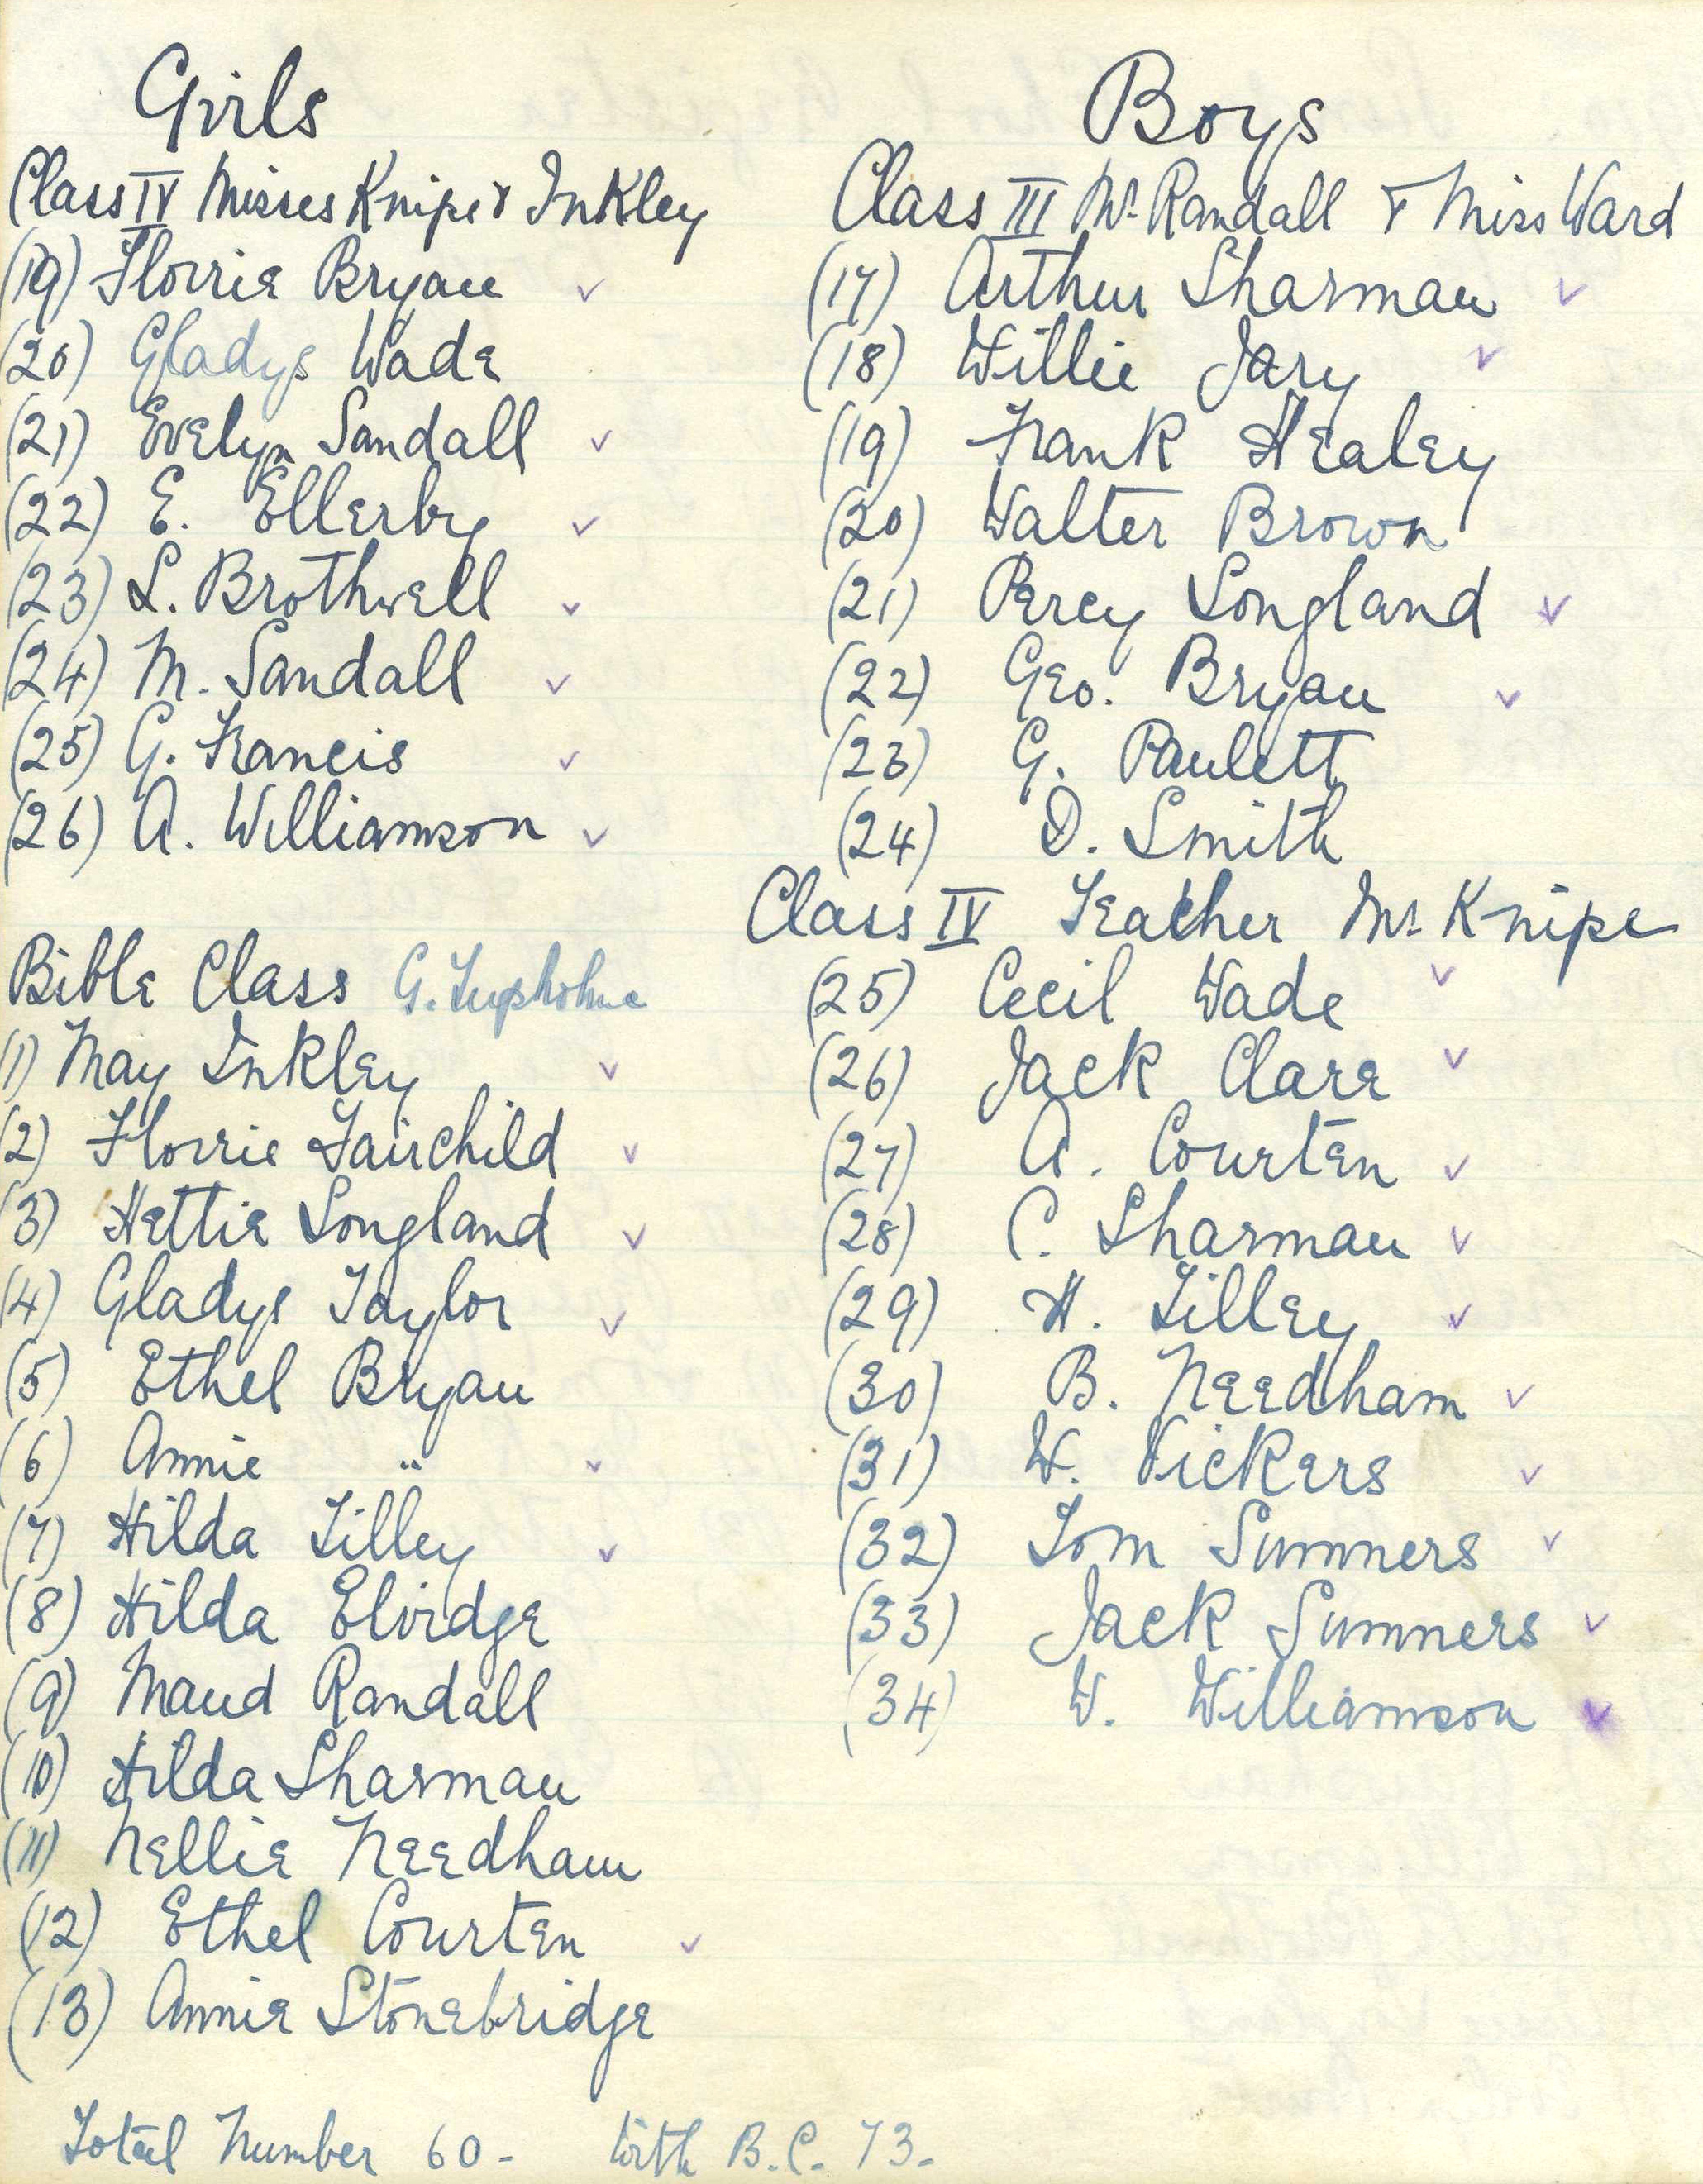 Girls
Class IV Misses Knipe & Inkley
(19) Florrie Bryan ✓
(20) Gladys Wade
(21) Evelyn Sandall ✓
(22) E. Ellerby ✓
(23) L. Brothwell ✓
(24) M. Sandall ✓
(25) G. Francis ✓
(26) A. Williamson ✓
Bible Class G. Tupholme
(1) May Inkley ✓
(2) Florrie Fairchild ✓
(3) Hettie Longland ✓
(4) Gladys Taylor ✓
(5) Ethel Bryan
(6) Annie " ✓
(7) Hilda Tilley ✓
(8) Hilda Elvidge
(9) Maud Randall
(10) Hilda Sharman
(11) Nellie Needham
(12) Ethel Courten ✓
(13) Annie Stonebridge
Boys
Class III Mr Randall & Miss Ward
(17) Arthur Sharman ✓
(18) Willie Jary ✓
(19) Frank Healey
(20) Walter Brown
(21) Percy Longland ✓
(22) Geo. Bryan ✓
(23) G. Paulett
(24) D. Smith
Class IV Teacher Mr Knipe
(25) Cecil Wade ✓
(26) Jack Clare ✓
(27) A. Courten ✓
(28) C. Sharman ✓
(29) H. Tilley ✓
(30) B. Needham ✓
(31) W. Vickers ✓
(32) Tom Summers ✓
(33) Jack Summers ✓
(34) W. Williamson ✓
Total Number 60 - With B.C. 73 -